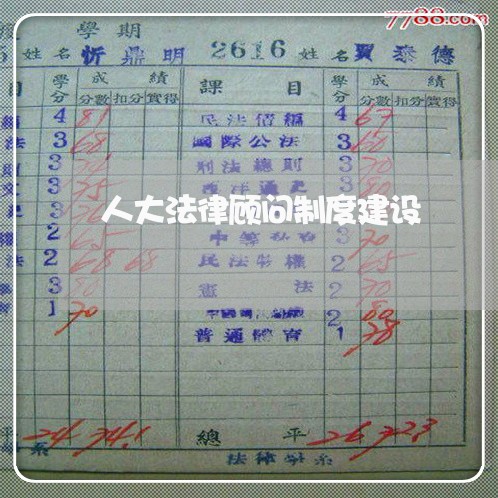 7788.com
學期
姓名 忻鼎明 2616 姓名 賈泰德
目 學分 成績 課目 學分 成績
分數 扣分 實得 分數 扣分 實得
4 81 民法債編 4 67
法 3 68 國際公法 3 60
3 刑法總則 3 70
3 75 西洋通史 3 80
人大法律顾问制度建设
2 65 3 70
法 2 68 68 民法物權 2 65
3 80 憲法 2 70
1 70 2 80
普通體育 1 78
平 24 74.1 總平 26 72.3
系 法律學系